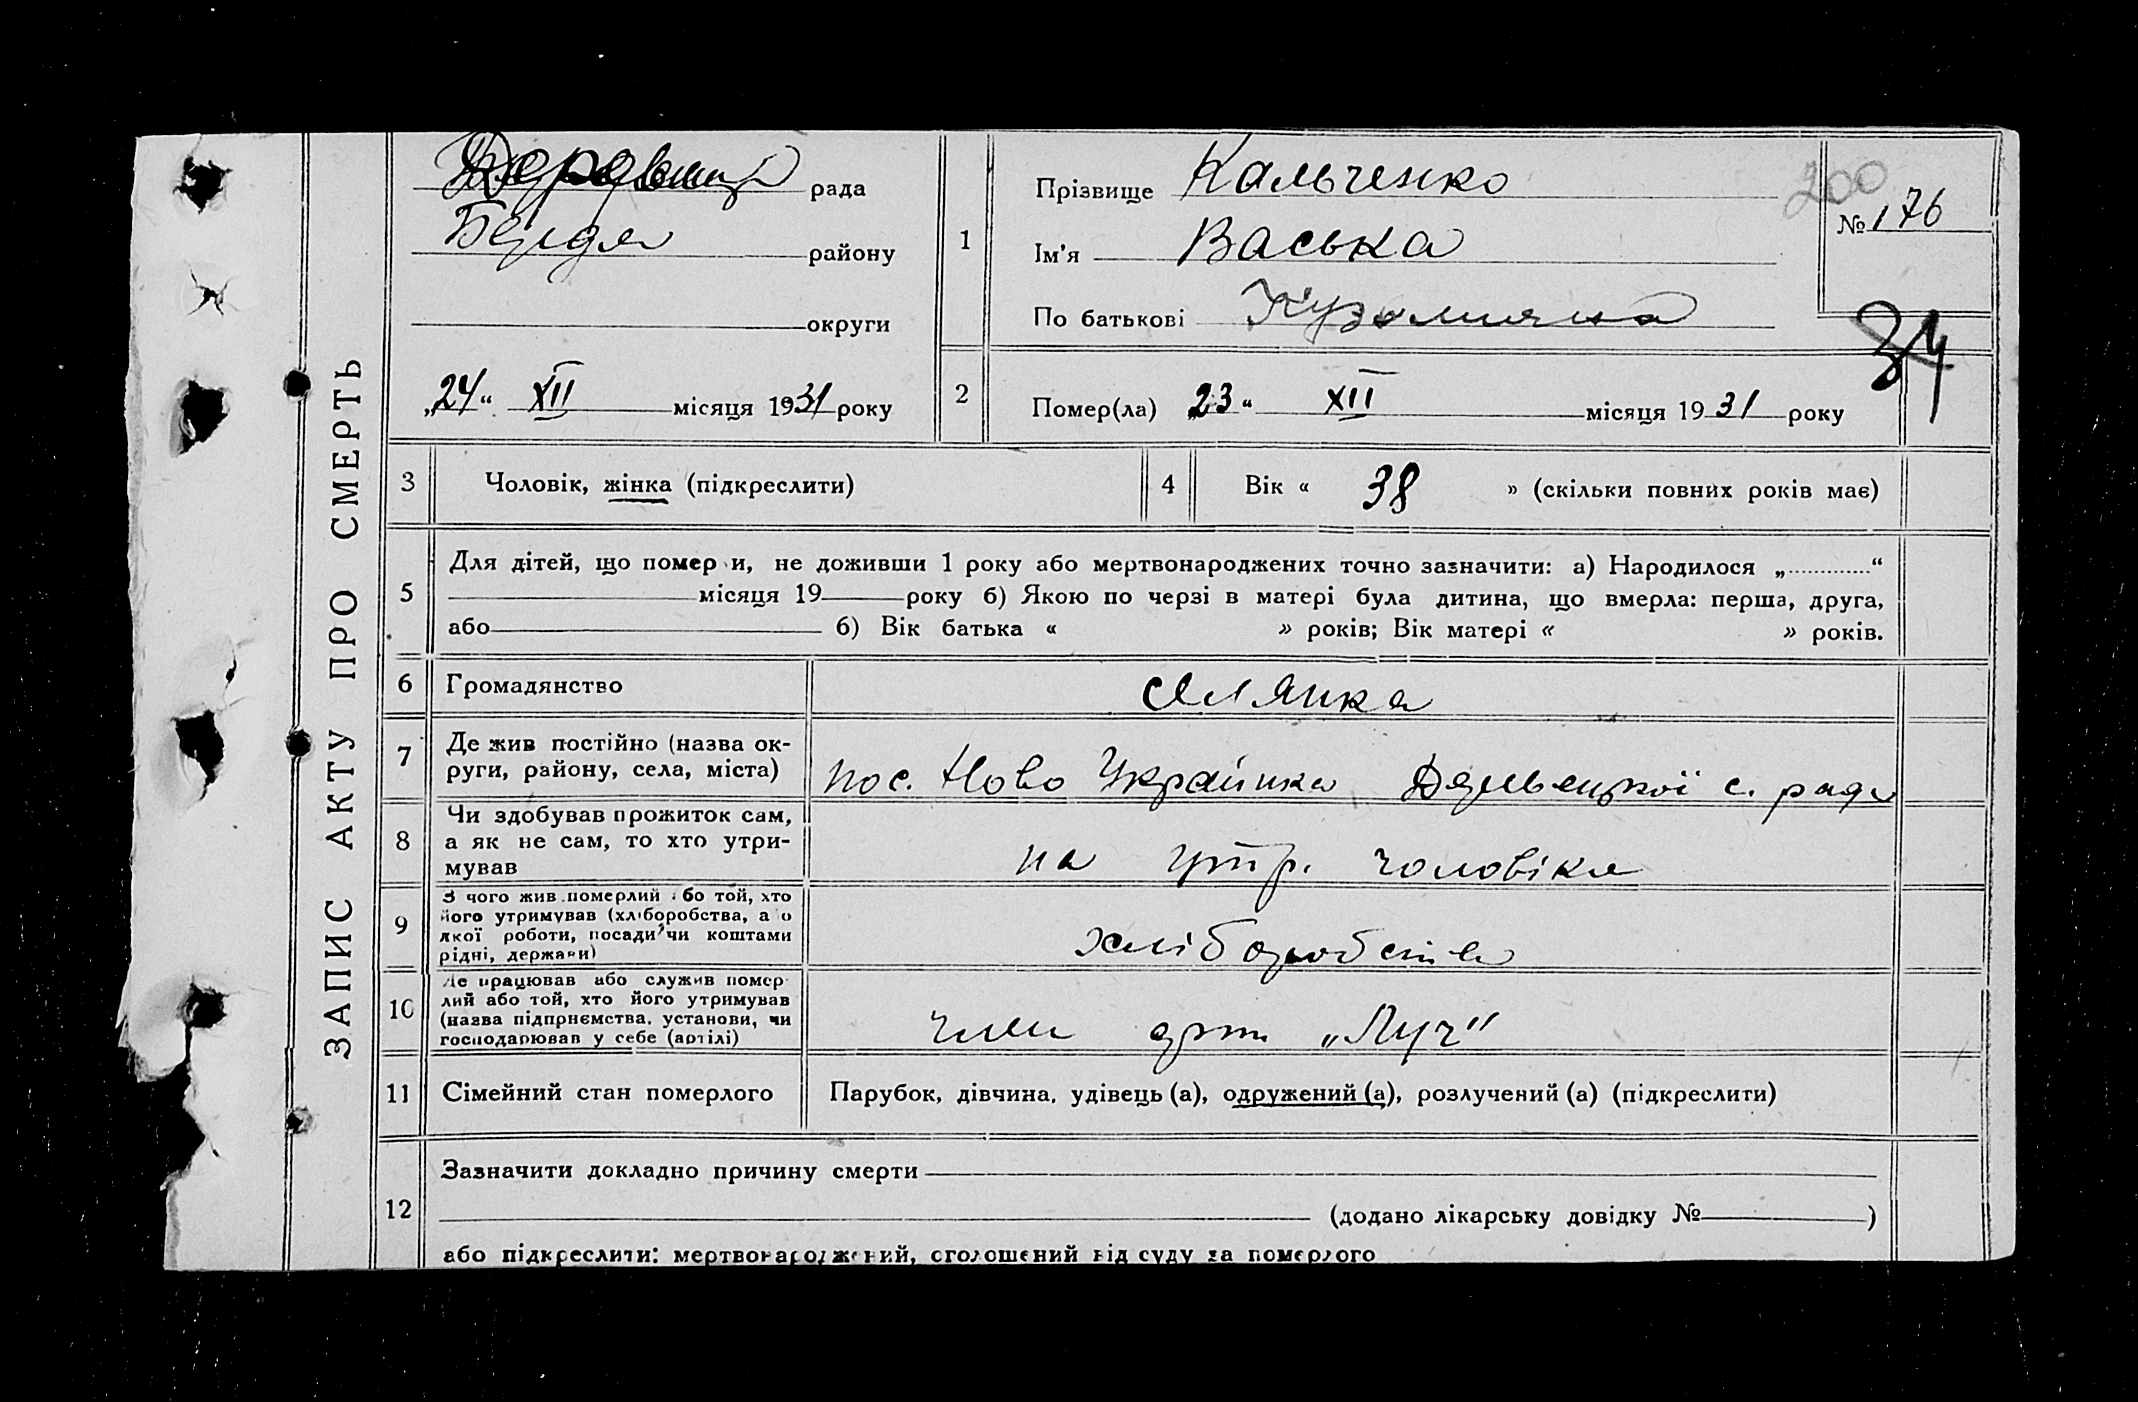 рада
района
округи
„24“ XII місяця 1931 року
ЗАПИС АКТУ ПРО СМЕРТЬ
1 Прізвище Кальченко
Ім'я Васька
По батькові
200
№ 176
2 Помер(ла) „23“ XII місяця 1931 року
3 Чоловік, жінка (підкреслити)
4 Вік « 38 » (скільки повних років має)
5 Для дітей, що помер и, не доживши 1 року або мертвонароджених точно зазначити: а) Народилося „............“
місяця 19 року б) Якою по черзі в матері була дитина, що вмерла: перша, друга,
або б) Вік батька « » років; Вік матері « » років.
6 Громадянство селянка
7 Де жив постійно (назва ок-
руги, району, села, міста) пос. Ново Українка с. рада
8 Чи здобував прожиток сам,
а як не сам, то хто утри-
мував на утр. чоловіка
9 З чого жив померлий або той, хто
його утримував (хліборобства, а о
якої роботи, посади чи коштами
рідні, держави) хліборобства
10 Де працював або служив помер
лий або той, хто його утримував
(назва підприємства, установи, чи
господарював у себе (артілі) член арт. „Луч“
11 Сімейний стан померлого Парубок, дівчина, удівець (а), одружений (а), розлучений (а) (підкреслити)
12 Зазначити докладно причину смерти
(додано лікарську довідку № )
або підкреслити: мертвонароджений, оголошений від суду за померлого